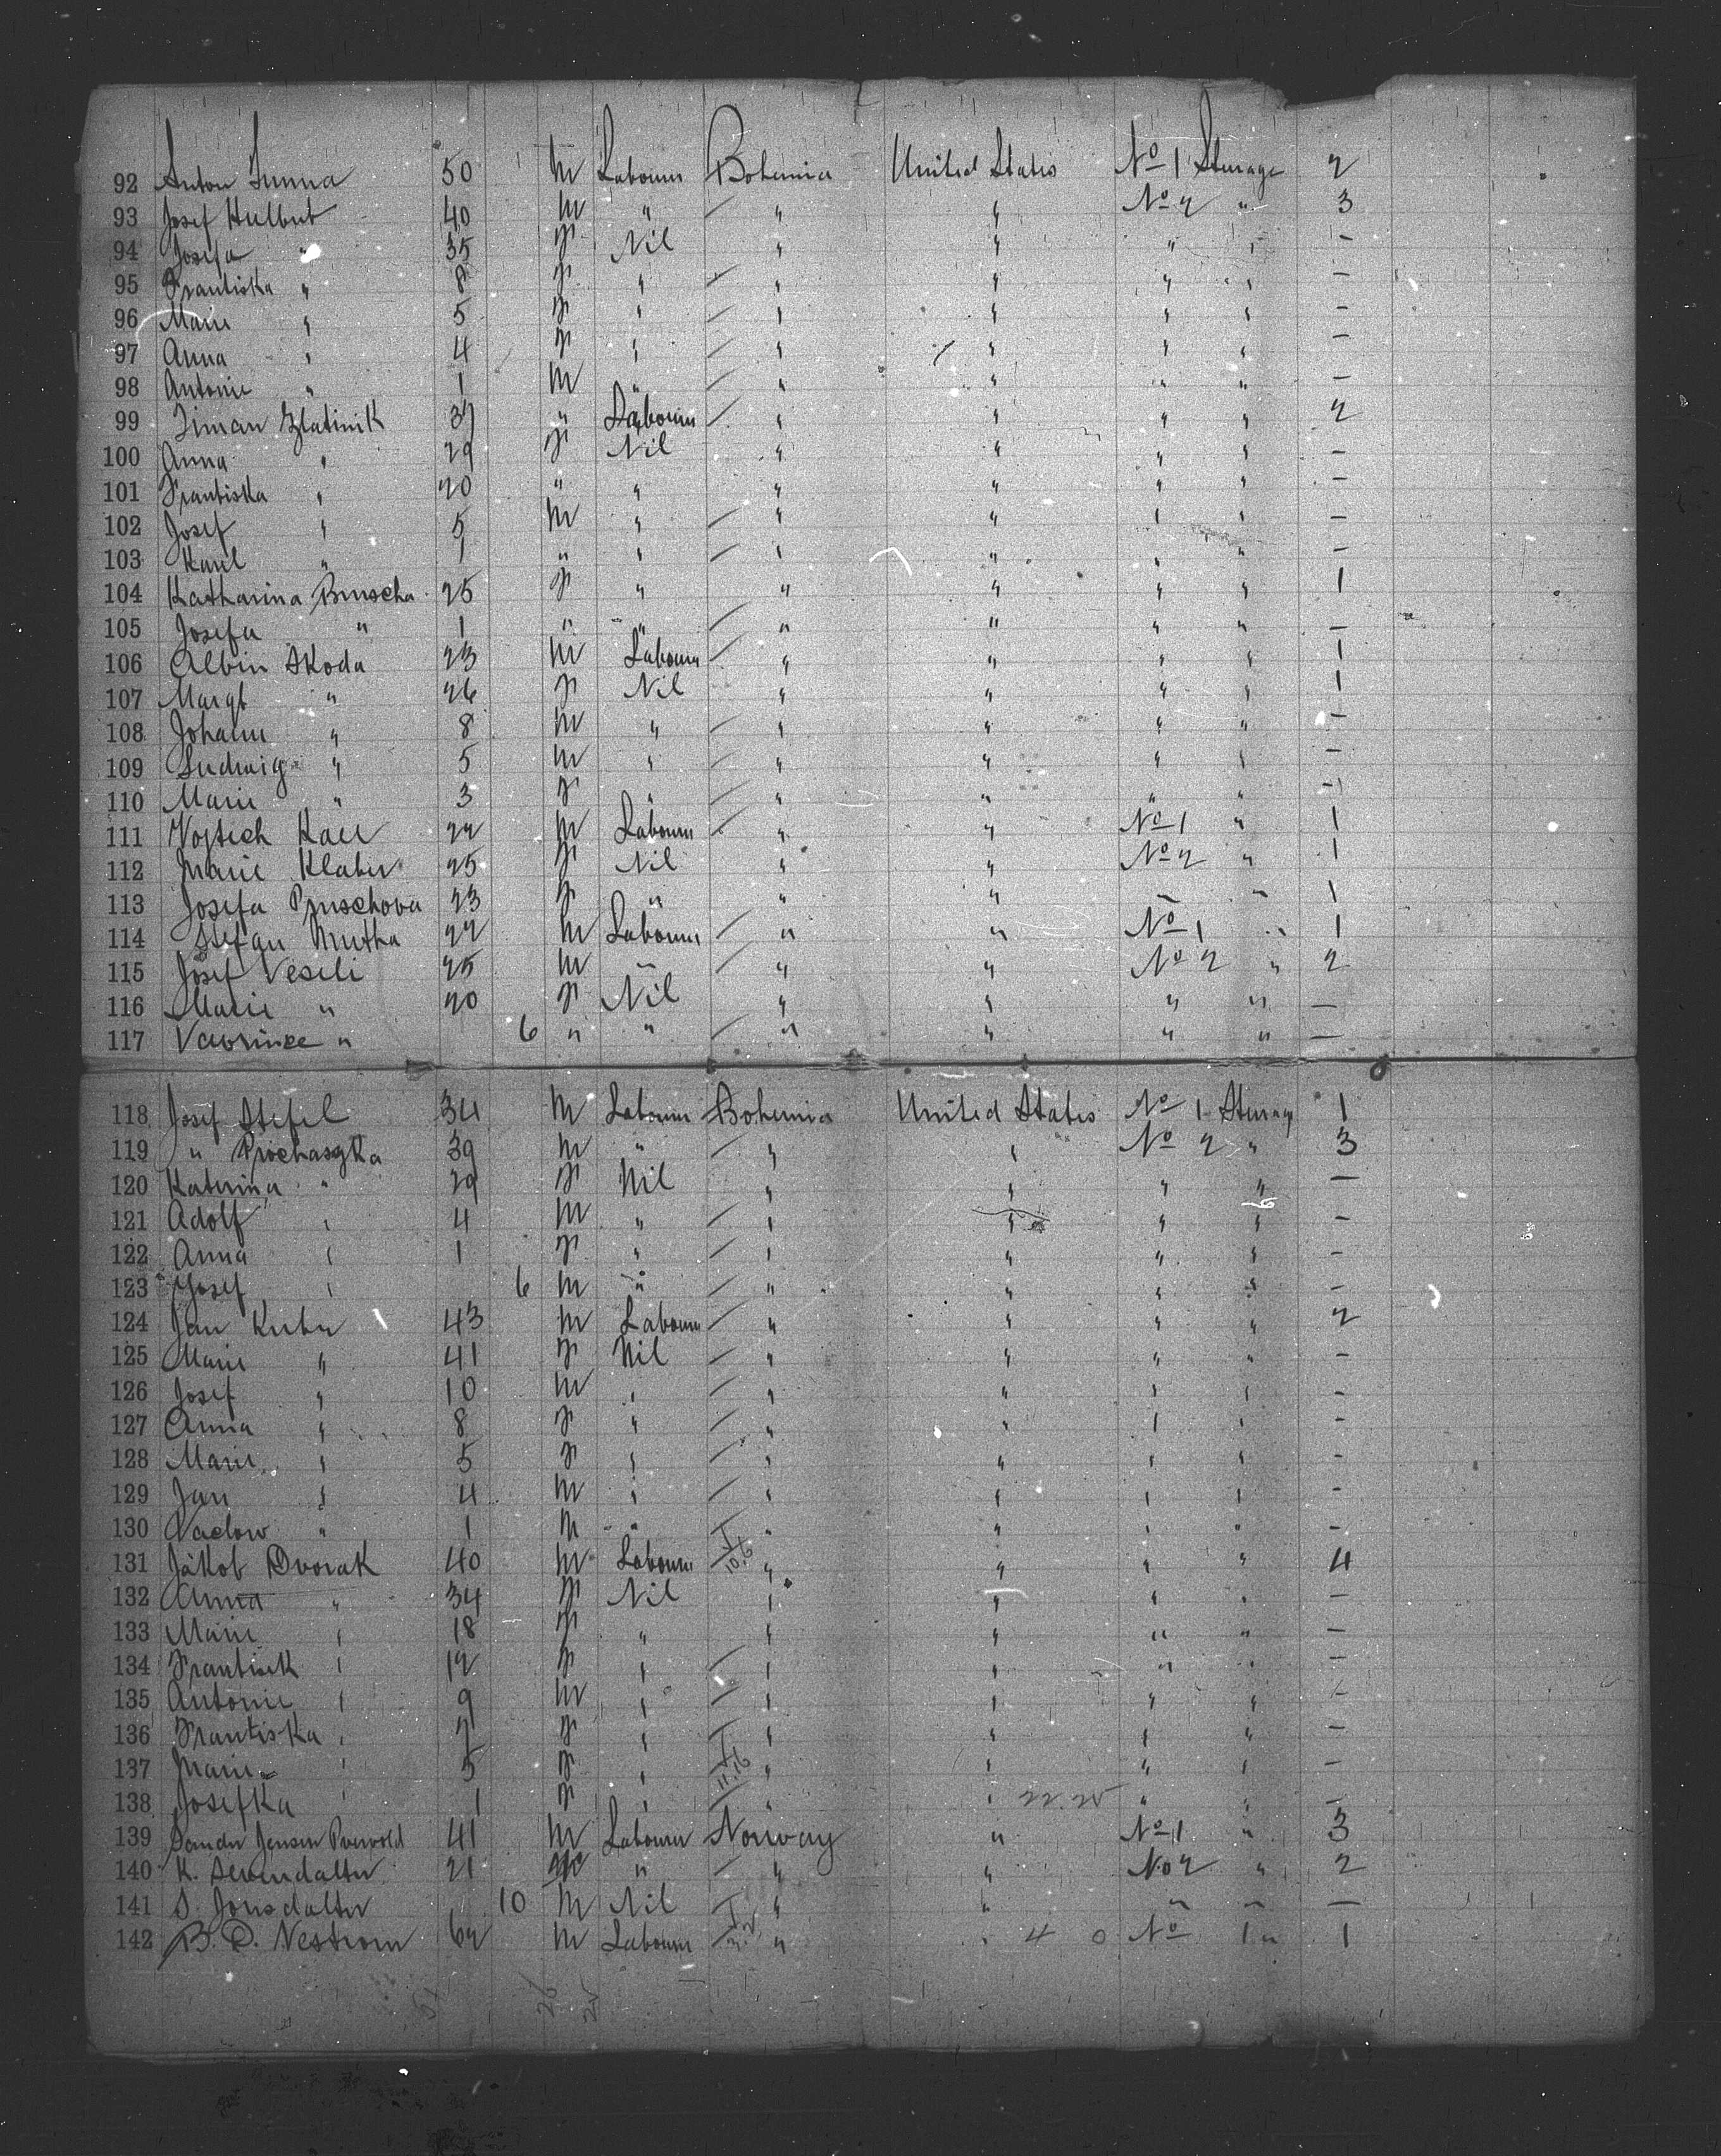 92 Anton Sunna 50 M Labourer Bohemia United States No 1 Steerage 2
93 Josef Hulbut 40 M " " " No 2 " 3
94 Josefa " 35 F Nil " " " " –
95 Frantiska " 8 F " " " " " –
96 Marie " 5 F " " " " " –
97 Anna " 4 F " " " " " –
98 Antonie " 1 M " " " " " –
99 Timan Zlatinik 37 " Labourer " " " " 2
100 Anna " 29 F Nil " " " " –
101 Frantiska " 20 " " " " " " –
102 Josef " 5 M " " " " " –
103 Karel " 1 " " " " " " –
104 Katharina Bruscha 25 F " " " " " 1
105 Josefa " 1 " " " " " " –
106 Albin Skoda 23 M Labourer " " " " 1
107 Margt " 26 F Nil " " " " 1
108 Johann " 8 M " " " " " –
109 Ludwig " 5 M " " " " " –
110 Marie " 3 F " " " " " –
111 Vojtech 22 M Labourer " " No 1 " 1
112 Marie Klaber 25 F Nil " " No 2 " 1
113 Josefa Pruschova 23 F " " " " " 1
114 Stefan 22 M Labourer " " No 1 " 1
115 Josef Veseli 25 M " " " No 2 " 2
116 Marie " 20 F Nil " " " " –
117 " 6 " " " " " " –
118 Josef Stefel 34 M Labourer Bohemia United States No 1 Steerage 1
119 " Prochaszka 39 M " " " No 2 " 3
120 Katerina " 29 F Nil " " " " –
121 Adolf " 4 M " " " " " –
122 Anna " 1 F " " " " " –
123 Josef " 6 M " " " " " –
124 Jan Kuba 43 M Labourer " " " " 2
125 Marie " 41 F Nil " " " " –
126 Josef " 10 M " " " " " –
127 Anna " 8 F " " " " " –
128 Marie " 5 F " " " " " –
129 Jan " 4 M " " " " " –
130 Vaclow " 1 M " " " " " –
131 Jakob Dvorak 40 M Labourer 10.6 " " " " 4
132 Anna " 34 F Nil " " " " –
133 Marie " 18 F " " " " " –
134 Frantisek " 12 F " " " " " –
135 Antonie " 9 M " " " " " –
136 Frantiska " 7 F " " " " " –
137 Marie " 5 F " 11.16 " " " " –
138 Josefka " 1 F " " " 22.25 " " –
139 Sander Jensen 41 M Labourer Norway " No 1 " 3
140 K. 21 " " " No 2 " 2
141 S. Jonsdatter 10 M Nil " " " " –
142 B. O. Nestrom 62 M Labourer " " 4 0 No 1 " 1
26 25